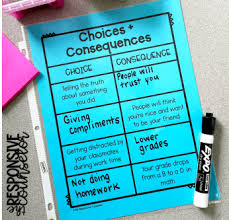 Choices +
Consequences
CHOICE
CONSEQUENCE
Telling the truth
about something you
did.
People will
trust you
Giving
compliments
People will think
you're nice and want
to be your friend.
Getting distracted by
your classmates
during work time
Lower
grades
Not doing
homework
Your grade drops
from a B to a D in
math.
the
RESPONSIVE
counselor
EXPO